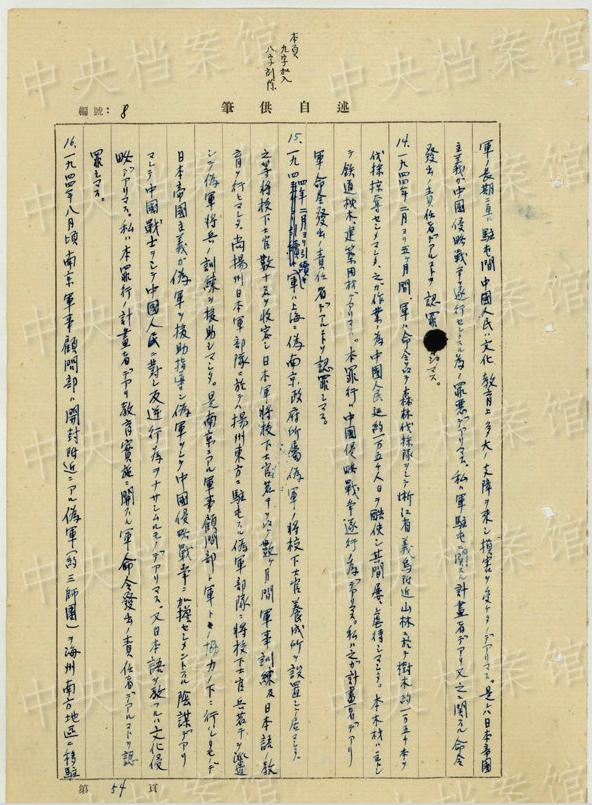 本頁
九字加入
八字削除
述自供筆
編號：8
軍ノ長期ニ亘ル駐屯間中國人民ハ文化教育上多大ノ支障ヲ來シ損害ヲ受ケタノデアリマス。是レハ日本帝國
主義ガ中國侵略戰爭ヲ遂行センガ為ノ罪悪デアリマス。私ハ軍駐屯ニ関スル計畫者デアリ又之ニ関スル命令
發出ノ責任者デアルコトヲ認罪シマス。
14. 一九四四年二月ヨリ五ヶ月間、軍ハ命令シテ森林伐採隊ヲシテ浙江省義烏附近山林ニ於テ樹木約一万五千本ヲ
伐採掠奪セシメマシタ之ガ作業ノ為中國人民延約一万五千人日ヲ酷使シ其間屡々虐待シマシタ。本木材ハ主トシ
テ鉄道枕木、建築用材デアリマス。本罪行ハ中國侵略戰爭遂行ノ為デアリマス。私ハ之ガ計畫者デアリ
軍命令發出ノ責任者デアルコトヲ認罪シマス
15. 一九四四年二月ヨリ引續キ軍ハ上海ニ偽南京政府所屬偽軍ノ將校下士官養成所ヲ設置シテ居マシタ。
之等將校下士官数十名ヲ收容シ日本軍將校下士官若干ヲ以テ数ヶ月間軍事訓練及日本語ノ教
育ヲ行ヒマシタ。尚揚州日本軍部隊ニ於テハ揚州東方ニ駐屯スル偽軍部隊ニ將校下士官兵若干ヲ派遣
シテ偽軍將兵ノ訓練ヲ援助シマシタ。是南京ニアル軍事顧問部ト軍トノ協力ノ下ニ行ハレタモノデ
日本帝國主義ガ偽軍ヲ援助指導シ偽軍ヲシテ中國侵略戰爭ニ加擔セシメントスル陰謀デアリ
マシテ中國戰士ヲシテ中國人民ニ對シ反逆行為ヲナサシムルモノデアリマス。又日本語ヲ教フルハ文化侵
略デアリマス。私ハ本罪行ノ計畫者デアリ教育實施ニ関スル軍命令發出ノ責任者デアルコトヲ認
罪シマス。
16. 一九四四年八月頃南京軍事顧問部ハ開封附近ニアル偽軍（約三師團）ヲ海州南方地區ニ移駐
第54頁
中央档案馆